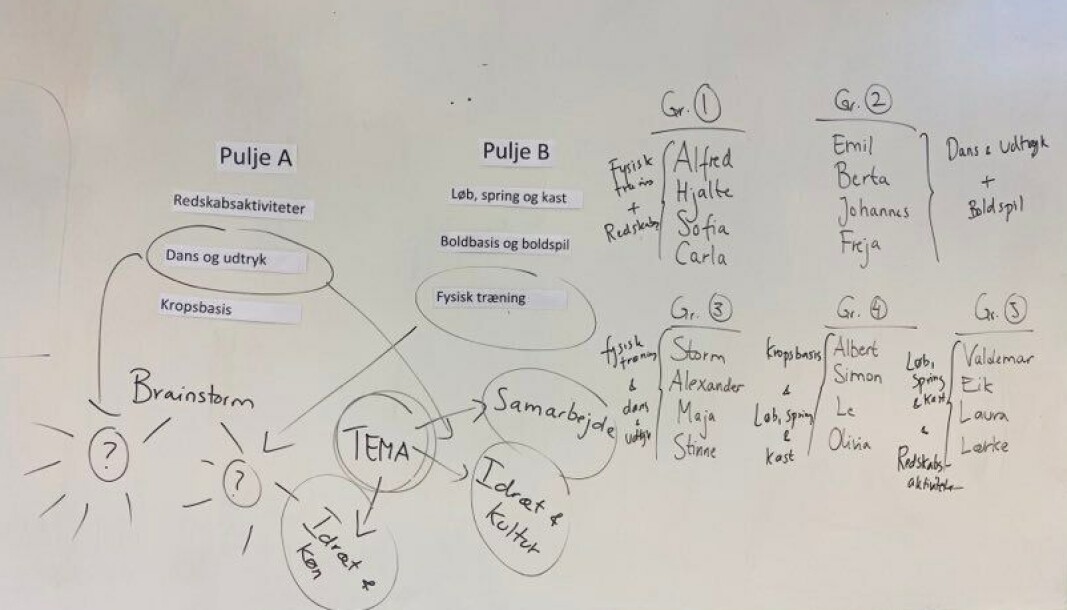 Pulje A
Redskabsaktiviteter
Dans og udtryk
Kropsbasis
Pulje B
Løb, spring og kast
Boldbasis og boldspil
Fysisk træning
Brainstorm
?
?
TEMA
Samarbejde
Idræt & kultur
Idræt & køn
Gr. 1
Fysisk
træning
+
Redskabs
Alfred
Hjalte
Sofia
Carla
Gr. 2
Emil
Berta
Johannes
Freja
Dans & udtryk
+
Boldspil
Gr. 3
fysisk
træning
&
dans
&
udtryk
Storm
Alexander
Maja
Stinne
Gr. 4
Kropsbasis
&
Løb, spring
&
kast
Albert
Simon
Le
Olivia
Gr. 5
Løb,
spring
& kast
&
Redskabs-
aktiviteter
Valdemar
Eik
Laura
Lærke